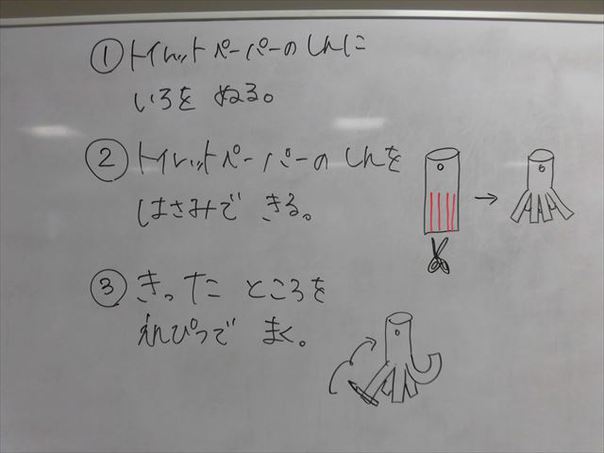 ①トイレットペーパーのしんに
いろを ぬる。
②トイレットペーパーのしんを
はさみで きる。
③きった ところを
えんぴつで まく。